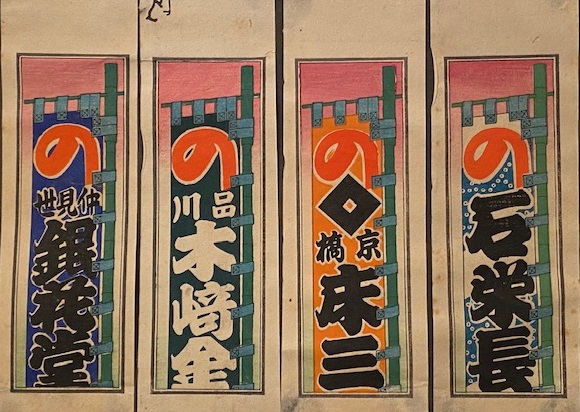 の
石栄長
の
京橋
床三
の
品川
木﨑金
の
仲見世
銀花堂